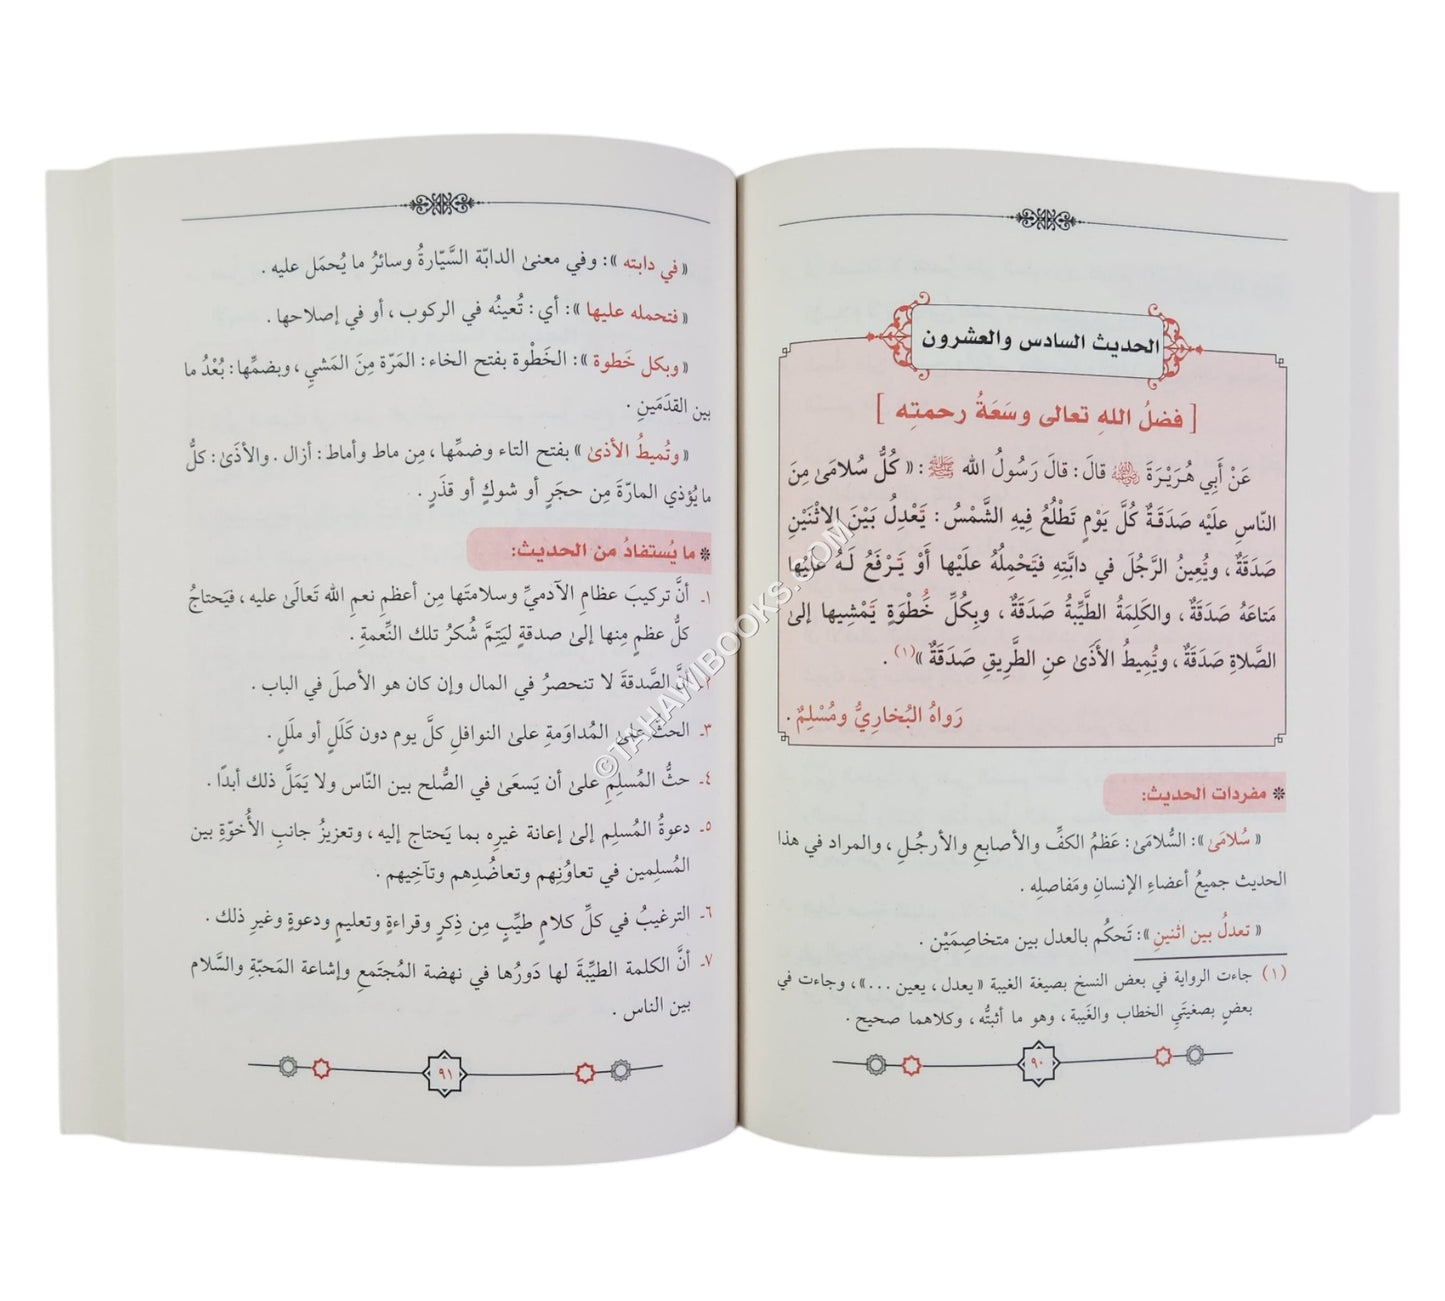 الحديث السادس والعشرون
[ فضلُ اللهِ تعالى وسَعَةُ رحمتِه ]
عَنْ أَبِي هُرَيْرَةَ ﵁ قالَ : قالَ رَسُولُ الله ﷺ : « كُلُّ سُلامَىٰ مِنَ
النّاسِ علَيْه صَدَقَةٌ كُلَّ يَوْمٍ تَطْلُعُ فِيهِ الشَّمْسُ : تَعْدِلُ بَيْنَ الِاثْنَيْنِ
صَدَقَةٌ ، وتُعِينُ الرَّجُلَ في دابَّتِهِ فتَحْمِلُهُ علَيْها أَوْ تَرْفَعُ لَهُ علَيْها
مَتاعَهُ صَدَقَةٌ ، والكَلِمَةُ الطَّيِّبةُ صَدَقَةٌ ، وبِكُلِّ خَُطْوَةٍ تَمْشِيها إلىٰ
الصَّلاةِ صَدَقَةٌ ، وتُمِيطُ الأَذَىٰ عنِ الطَّرِيقِ صَدَقَةٌ »(١) .
رَواهُ البُخارِيُّ ومُسْلِمٌ .
❊ مفردات الحديث:
« سُلامَىٰ »: السُّلامَىٰ : عَظمُ الكفِّ والأصابعِ والأرجُلِ ، والمراد في هذا
الحديث جميعُ أعضاءِ الإنسانِ ومَفاصلِه .
« تعدلُ بين اثنينِ »: تَحكُم بالعدل بين متخاصِمَيْن .
(١) جاءت الرواية في بعض النسخ بصيغة الغيبة « يعدل ، يعين ... » ، وجاءت في
بعضٍ بصيغتَيِ الخطاب والغَيبة ، وهو ما أثبتُّه ، وكلاهما صحيح .
٩٠
« في دابته »: وفي معنىٰ الدابّة السَّيّارةُ وسائرُ ما يُحمَل عليه .
« فتحمله عليها »: أي : تُعينُه في الركوب ، أو في إصلاحها .
« وبكل خَطوة »: الخَطْوة بفتح الخاء : المَرّة مِنَ المَشيِ ، وبضمِّها : بُعْدُ ما
بين القدَمَينِ .
« وتُميطُ الأذىٰ » بفتح التاء وضمِّها ، مِن ماط وأماط : أزال . والأذَىٰ : كلُّ
ما يُؤذي المارّةَ مِن حجَرٍ أو شوكٍ أو قذَرٍ .
❊ ما يُستفادُ من الحديث:
١ـ أنَّ تركيبَ عظامِ الآدميِّ وسلامتَها مِن أعظمِ نعمِ الله تَعالَىٰ عليه ، فيَحتاجُ
كلُّ عظمٍ مِنها إلىٰ صدقةٍ ليَتِمَّ شُكرُ تلك النِّعمةِ .
٢ـ أنَّ الصَّدقةَ لا تنحصرُ في المال وإن كان هو الأصلَ في الباب .
٣ـ الحثُّ علىٰ المُداوَمةِ علىٰ النوافلِ كلَّ يوم دون كَلَلٍ أو ملَلٍ .
٤ـ حثُّ المُسلِمِ علىٰ أن يَسعَىٰ في الصُّلح بين النّاس ولا يَمَلَّ ذلك أبدًا .
٥ـ دعوةُ المُسلِم إلىٰ إعانة غيرِه بما يَحتاج إليه ، وتعزيزُ جانبِ الأُخوّةِ بين
المُسلِمين في تعاوُنِهم وتعاضُدِهم وتآخِيهم .
٦ـ الترغيبُ في كلِّ كلامٍ طيِّبٍ مِن ذِكرٍ وقراءةٍ وتعليمٍ ودعوةٍ وغيرِ ذلك .
٧ـ أنَّ الكلمة الطيِّبةَ لها دَورُها في نهضة المُجتَمعِ وإشاعة المَحبّةِ والسَّلام
بين الناس .
٩١
©TAHAWIBOOKS.COM